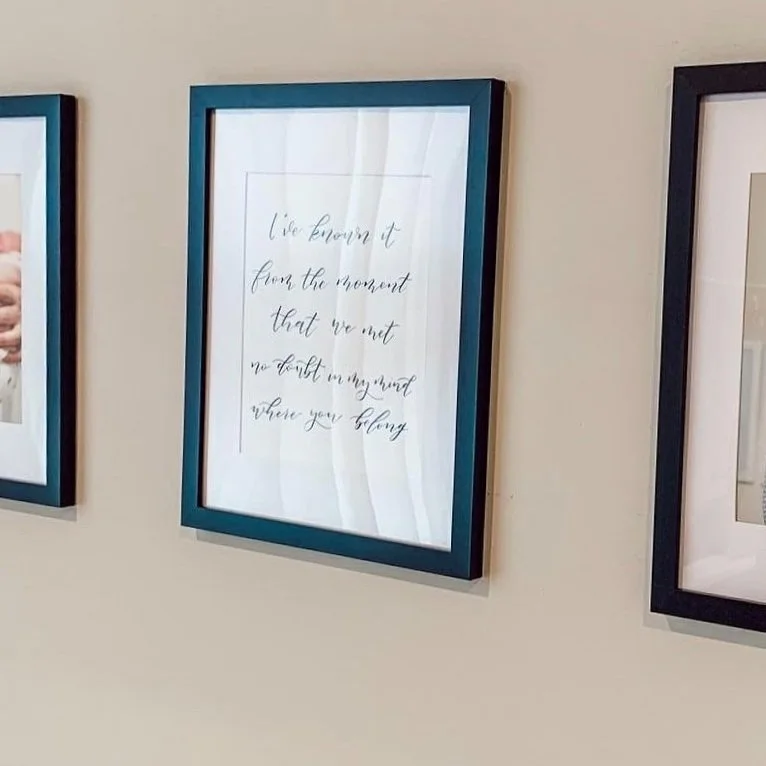 I've known it
from the moment
that we met
no doubt in my mind
where you belong